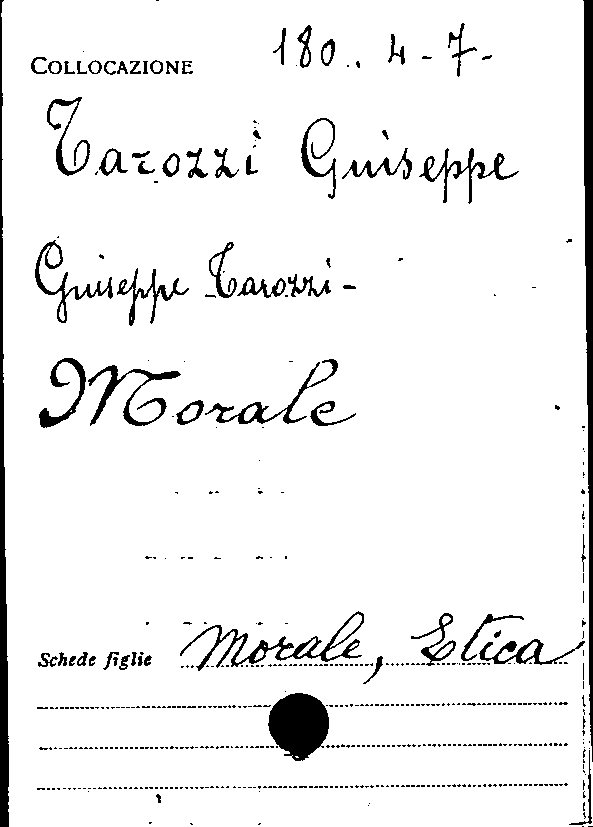 COLLOCAZIONE 180.. 4 - 7 -
Tarozzi Giuseppe
Giuseppe Tarozzi -
Morale
Schede figlie Morale, Etica